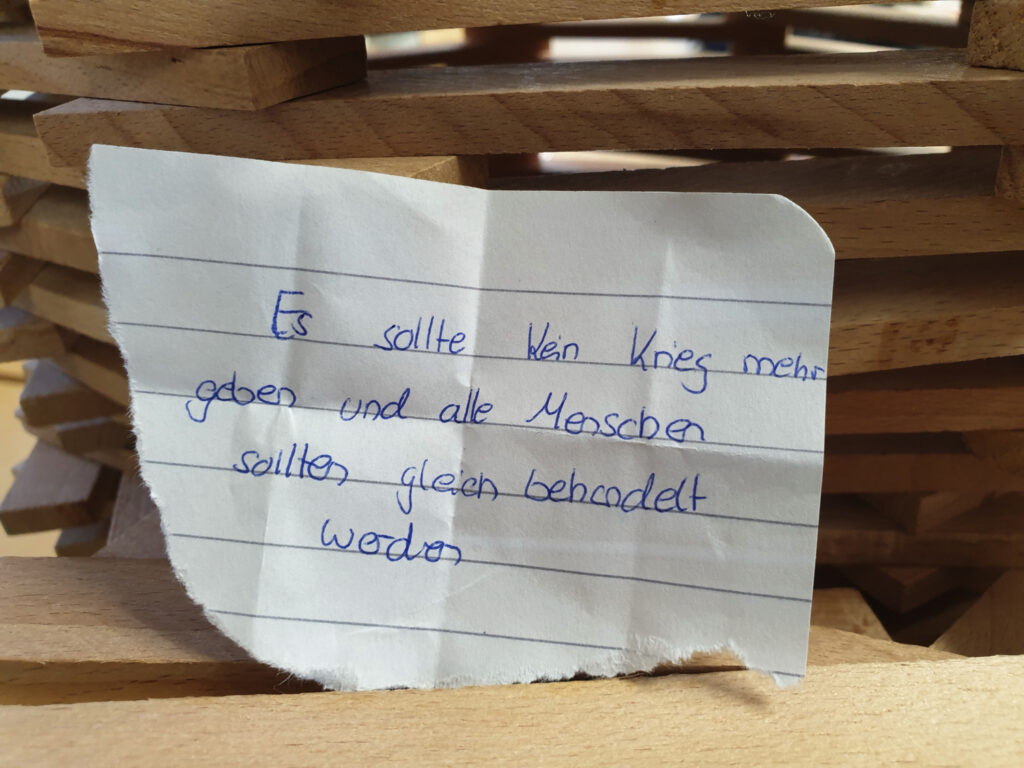 Es sollte kein Krieg mehr
geben und alle Menschen
sollten gleich behandelt
werden